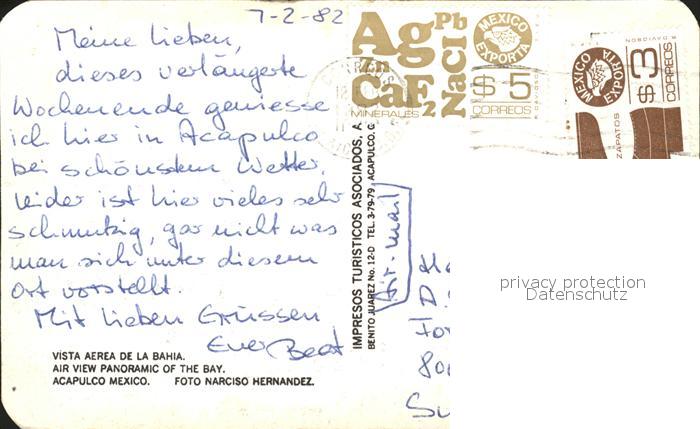 7-2-82
Meine lieben,
dieses verlängerte
Wochenende geniesse
ich hier in Acapulco
bei schönstem Wetter,
leider ist hier vieles sehr
schmutzig, gar nicht was
man sich unter diesem
Ort vorstellt.
Mit lieben Grüssen
Euer Beat
VISTA AEREA DE LA BAHIA.
AIR VIEW PANORAMIC OF THE BAY.
ACAPULCO MEXICO. FOTO NARCISO HERNANDEZ.
IMPRESOS TURISTICOS ASOCIADOS, A.
BENITO JUAREZ No. 12-D TEL. 3-79-79 ACAPULCO, G
Air-mail
Ag Pb
Zn
CaF2 NaCl
MINERALES
MEXICO
EXPORTA
$ 5
CORREOS
R. DAVIDSON
MEXICO
EXPORTA
$ 3
CORREOS
R. DAVIDSON
ZAPATOS
D
80
privacy protection
Datenschutz